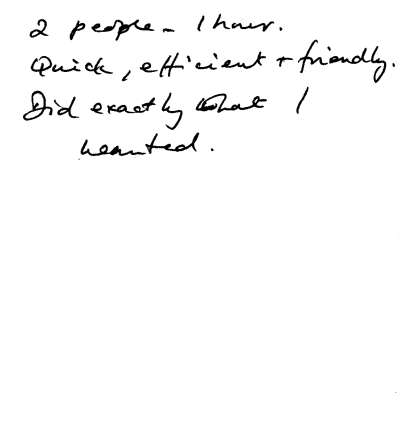 2 people - 1 hour.
Quick, efficient + friendly.
Did exactly what I
wanted.